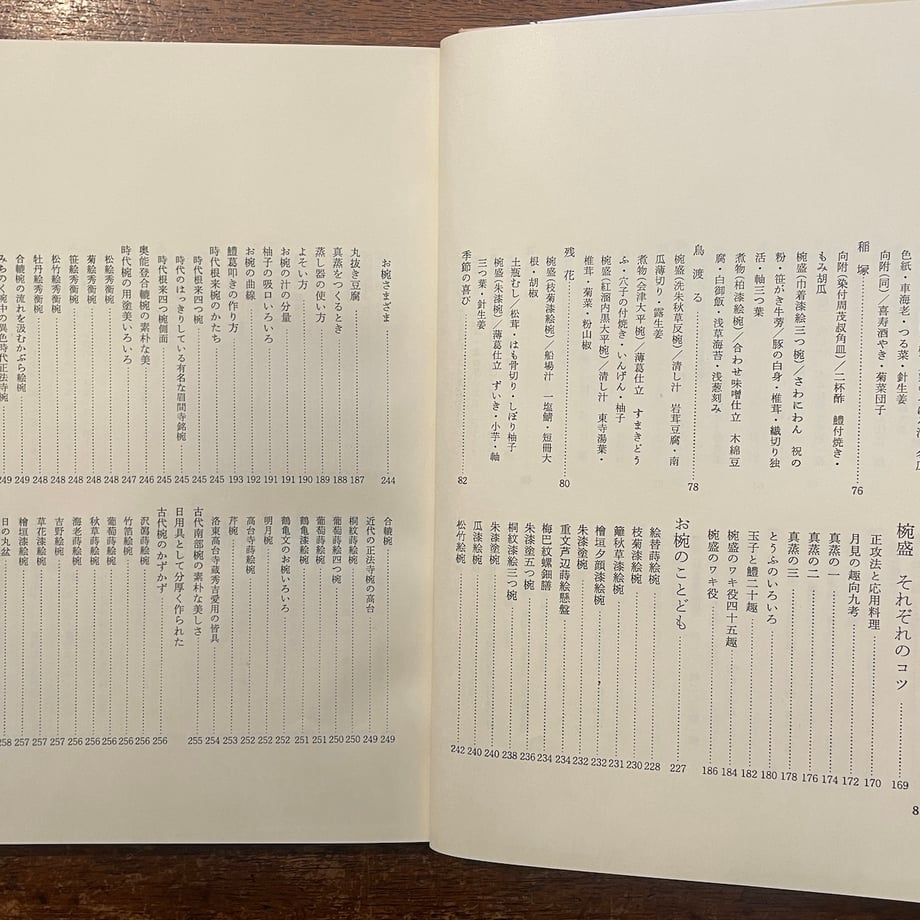 色紙・車海老・つる菜・針生姜
向附(同)/喜寿酒やき・菊菜団子
稲塚 76
向附(染付周茂叔角皿)/二杯酢 鱧付焼き・
もみ胡瓜
椀盛(巾着漆絵三つ椀)/さわにわん 祝の
粉・笹がき牛蒡/豚の白身・椎茸・繊切り独
活・軸三つ葉
煮物(柏漆絵椀)/合わせ味噌仕立 木綿豆
腐・白御飯・浅草海苔・浅葱刻み
鳥渡る 78
椀盛(洗朱秋草反椀)/清し汁 岩茸豆腐・南
瓜薄切り・露生姜
煮物(会津大平椀)/薄葛仕立 すまきどう
ふ・穴子の付焼き・いんげん・柚子
椀盛(紅溜内黒大平椀)/清し汁 東寺湯葉・
椎茸・菊菜・粉山椒
残花 80
椀盛(枝菊漆絵椀)/船場汁 一塩鯖・短冊大
根・胡椒
土瓶むし/松茸・はも骨切り・しぼり柚子
椀盛(朱漆椀)/薄葛仕立 ずいき・小芋・軸
三つ葉・針生姜
季節の喜び 82
椀盛 それぞれのコツ 169
正攻法と応用料理 170
月見の趣向九考 172
真蒸の一 174
真蒸の二 176
真蒸の三 178
とうふのいろいろ 180
玉子と鱧二十趣 182
椀盛のワキ役四十五趣 184
椀盛のワキ役 186
お椀のことども 227
絵替蒔絵椀 228
枝菊漆絵椀 230
籬秋草漆絵椀 231
檜垣夕顔漆絵椀 232
朱漆塗椀 232
重文芦辺蒔絵懸盤 234
梅巴紋螺鈿膳 234
朱漆塗五つ椀 236
桐紋漆絵三つ椀 238
朱漆塗椀 240
瓜漆絵椀 240
松竹絵椀 242
8
お椀さまざま 244
丸抜き豆腐 187
真蒸をつくるとき 188
蒸し器の使い方 189
よそい方 190
お椀の汁の分量 191
柚子の吸口いろいろ 191
お椀の曲線 192
鱧葛叩きの作り方 193
時代根来椀のかたち 245
時代根来四つ椀 245
時代のはっきりしている有名な眉間寺銘椀 245
時代根来四つ椀側面 245
奥能登合鹿椀の素朴な美 246
時代椀の用塗美いろいろ 247
松絵秀衡椀 248
菊絵秀衡椀 248
笹絵秀衡椀 248
松竹絵秀衡椀 248
牡丹絵秀衡椀 248
合鹿椀の流れを汲むかぶら絵椀 249
みちのく椀中の異色時代正法寺椀 249
合鹿椀 249
近代の正法寺椀の高台 249
桐紋蒔絵椀 250
葡萄蒔絵四つ椀 250
葡萄蒔絵椀 251
鶴亀漆絵椀 251
鶴亀文のお椀いろいろ 252
明月椀 252
高台寺蒔絵椀 252
芹椀 253
洛東高台寺蔵秀吉愛用の皆具 254
古代南部椀の素朴な美しさ 255
日用具として分厚く作られた
古代椀のかずかず 256
沢瀉蒔絵椀 256
竹笛絵椀 256
葡萄蒔絵椀 256
秋草蒔絵椀 256
海老蒔絵椀 256
吉野絵椀 257
草花漆絵椀 257
檜垣漆絵椀 257
日の丸盆 258